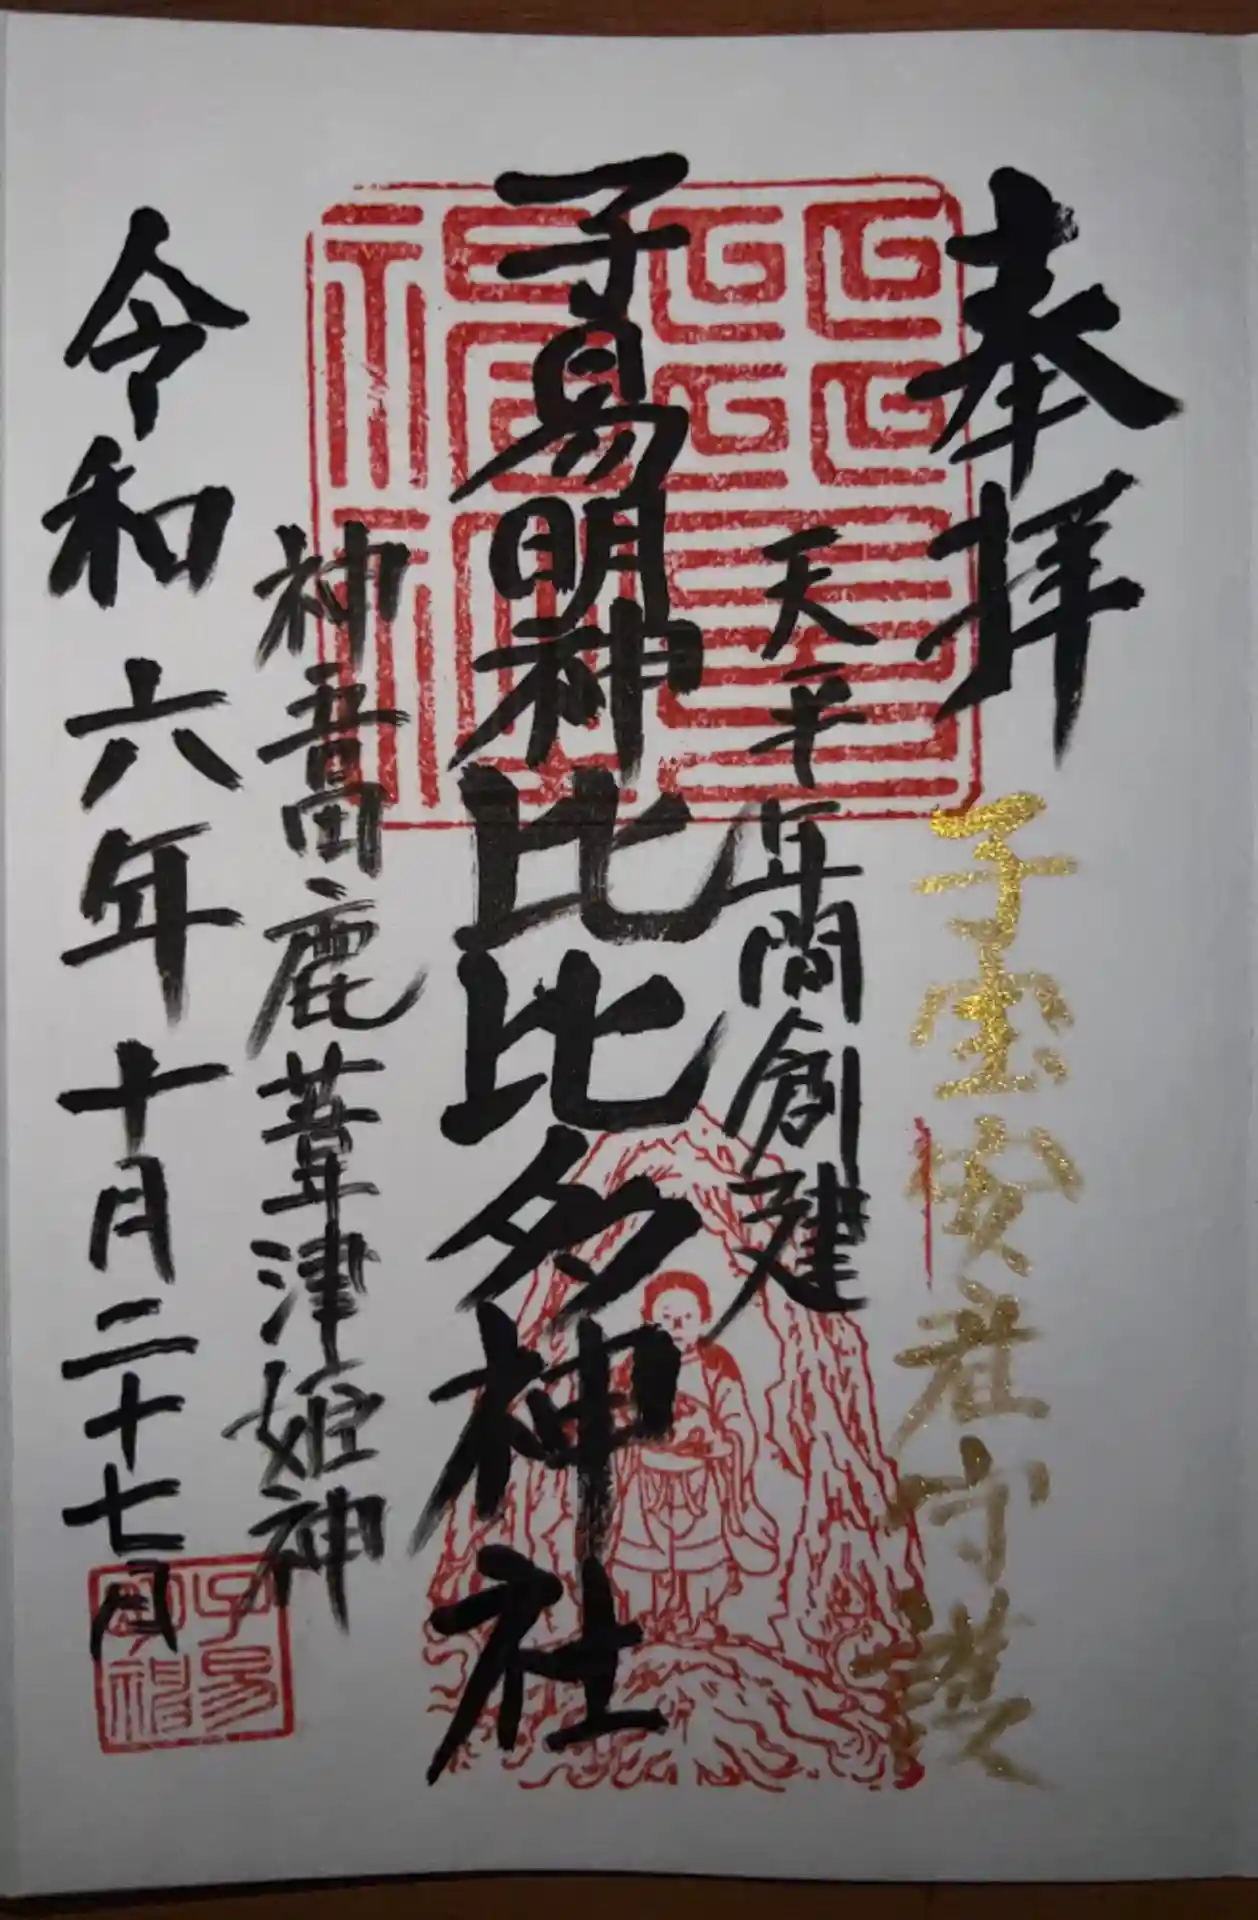 奉拝
子宝安産守護
天平年間創建
子易明神比比多神社
神吾田鹿葦津姫神
令和六年十月二十七日
子易明神